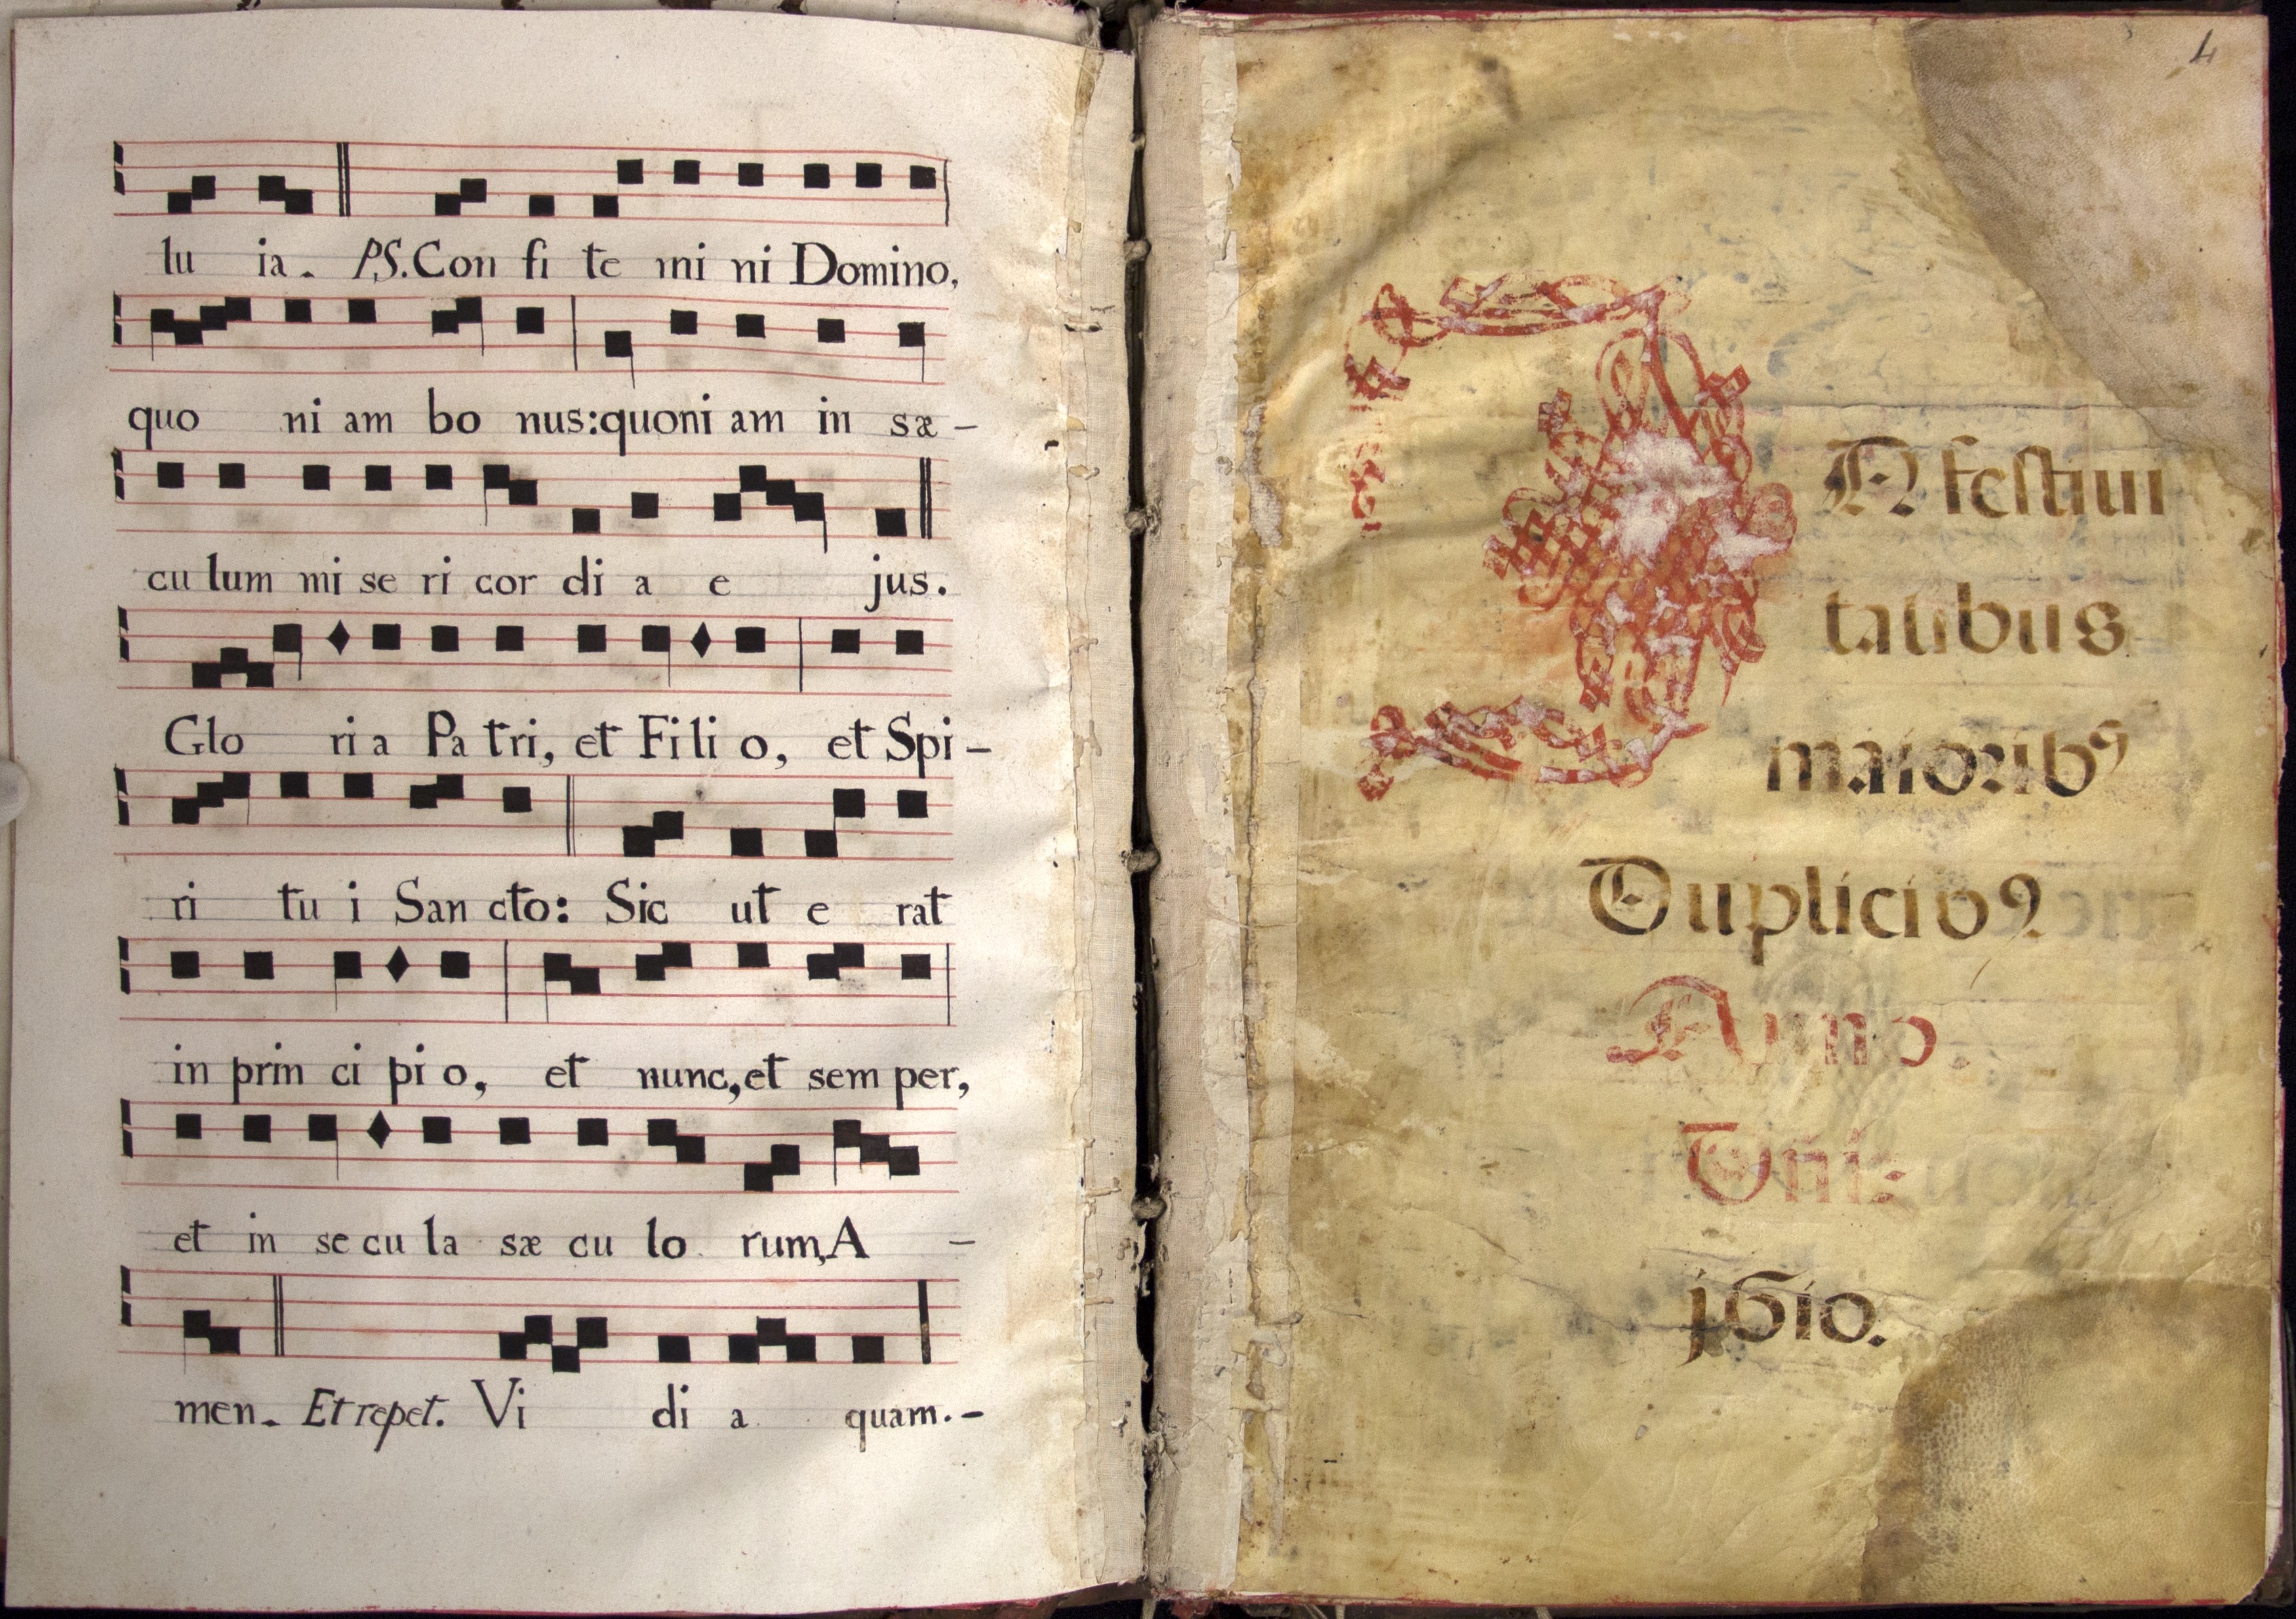 lu ia. PS. Con fi te mi ni Domino,
quo ni am bo nus: quoni am in sæ –
cu lum mi se ri cor di a e jus.
Glo ri a Pa tri, et Fi li o, et Spi –
ri tu i San cto: Sic ut e rat
in prin ci pi o, et nunc, et sem per,
et in se cu la sæ cu lo rum, A –
men. Et repet. Vi di a quam. –
4
N festiui
tatibus
maiorib9
Duplicib9
Anno.
Dñi:
j610.